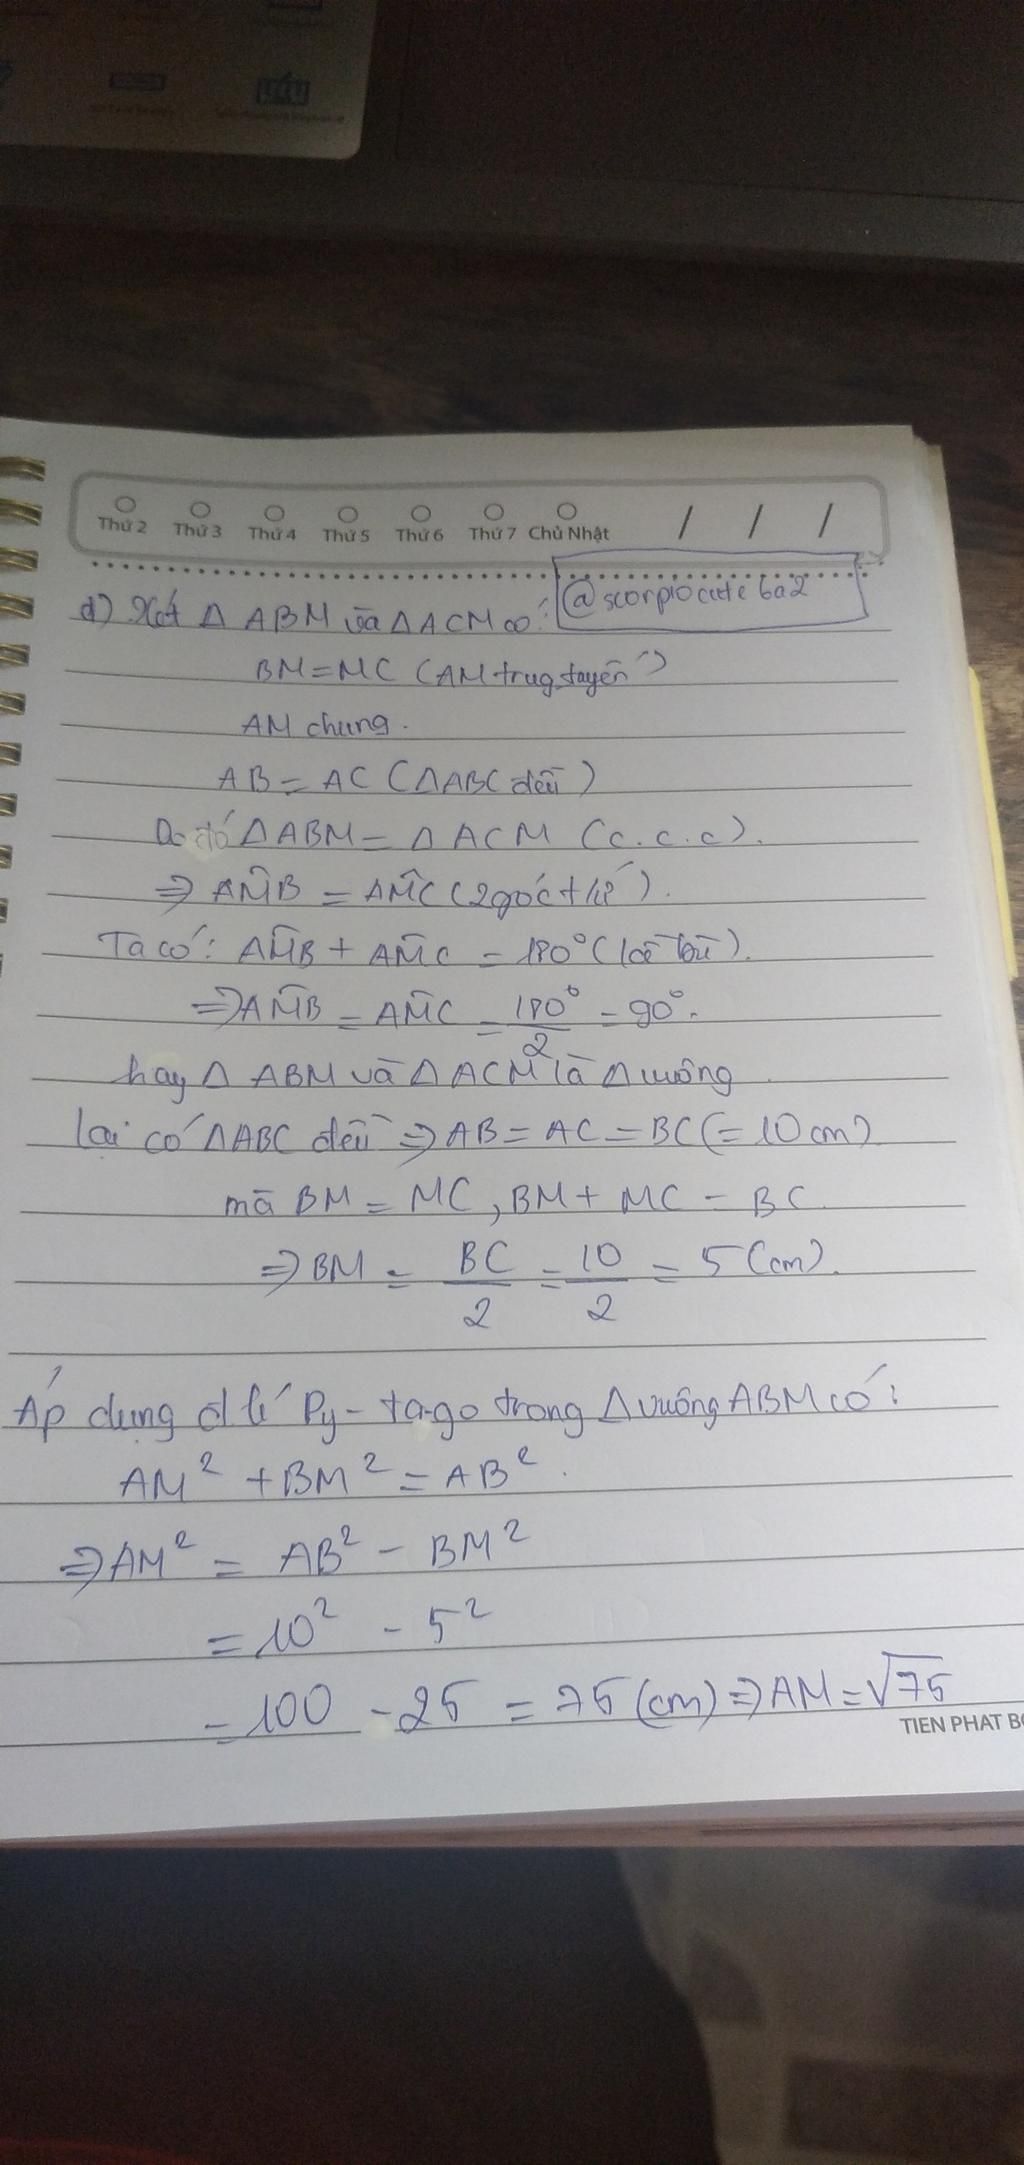 Thứ 2 Thứ 3 Thứ 4 Thứ 5 Thứ 6 Thứ 7 Chủ Nhật / / /
@scorpiocute6a2
d) Xét Δ ABM và Δ ACM có:
BM = MC (AM trug tuyến)
AM chung.
AB = AC (ΔABC đều)
Do đó Δ ABM = Δ ACM (c.c.c).
⇒ AM̂B = AM̂C (2 góc t/ứ).
Ta có: AM̂B + AM̂C = 180° (kề bù).
⇒ AM̂B = AM̂C = 180°/2 = 90°.
hay Δ ABM và Δ ACM là Δ vuông
lại có ΔABC đều ⇒ AB = AC = BC (= 10 cm)
mà BM = MC, BM + MC = BC
⇒ BM = BC/2 = 10/2 = 5 (cm).
Áp dụng đ lí Py-ta-go trong Δ vuông ABM có:
AM² + BM² = AB².
⇒ AM² = AB² - BM²
= 10² - 5²
= 100 - 25 = 75 (cm) ⇒ AM = √75
TIEN PHAT